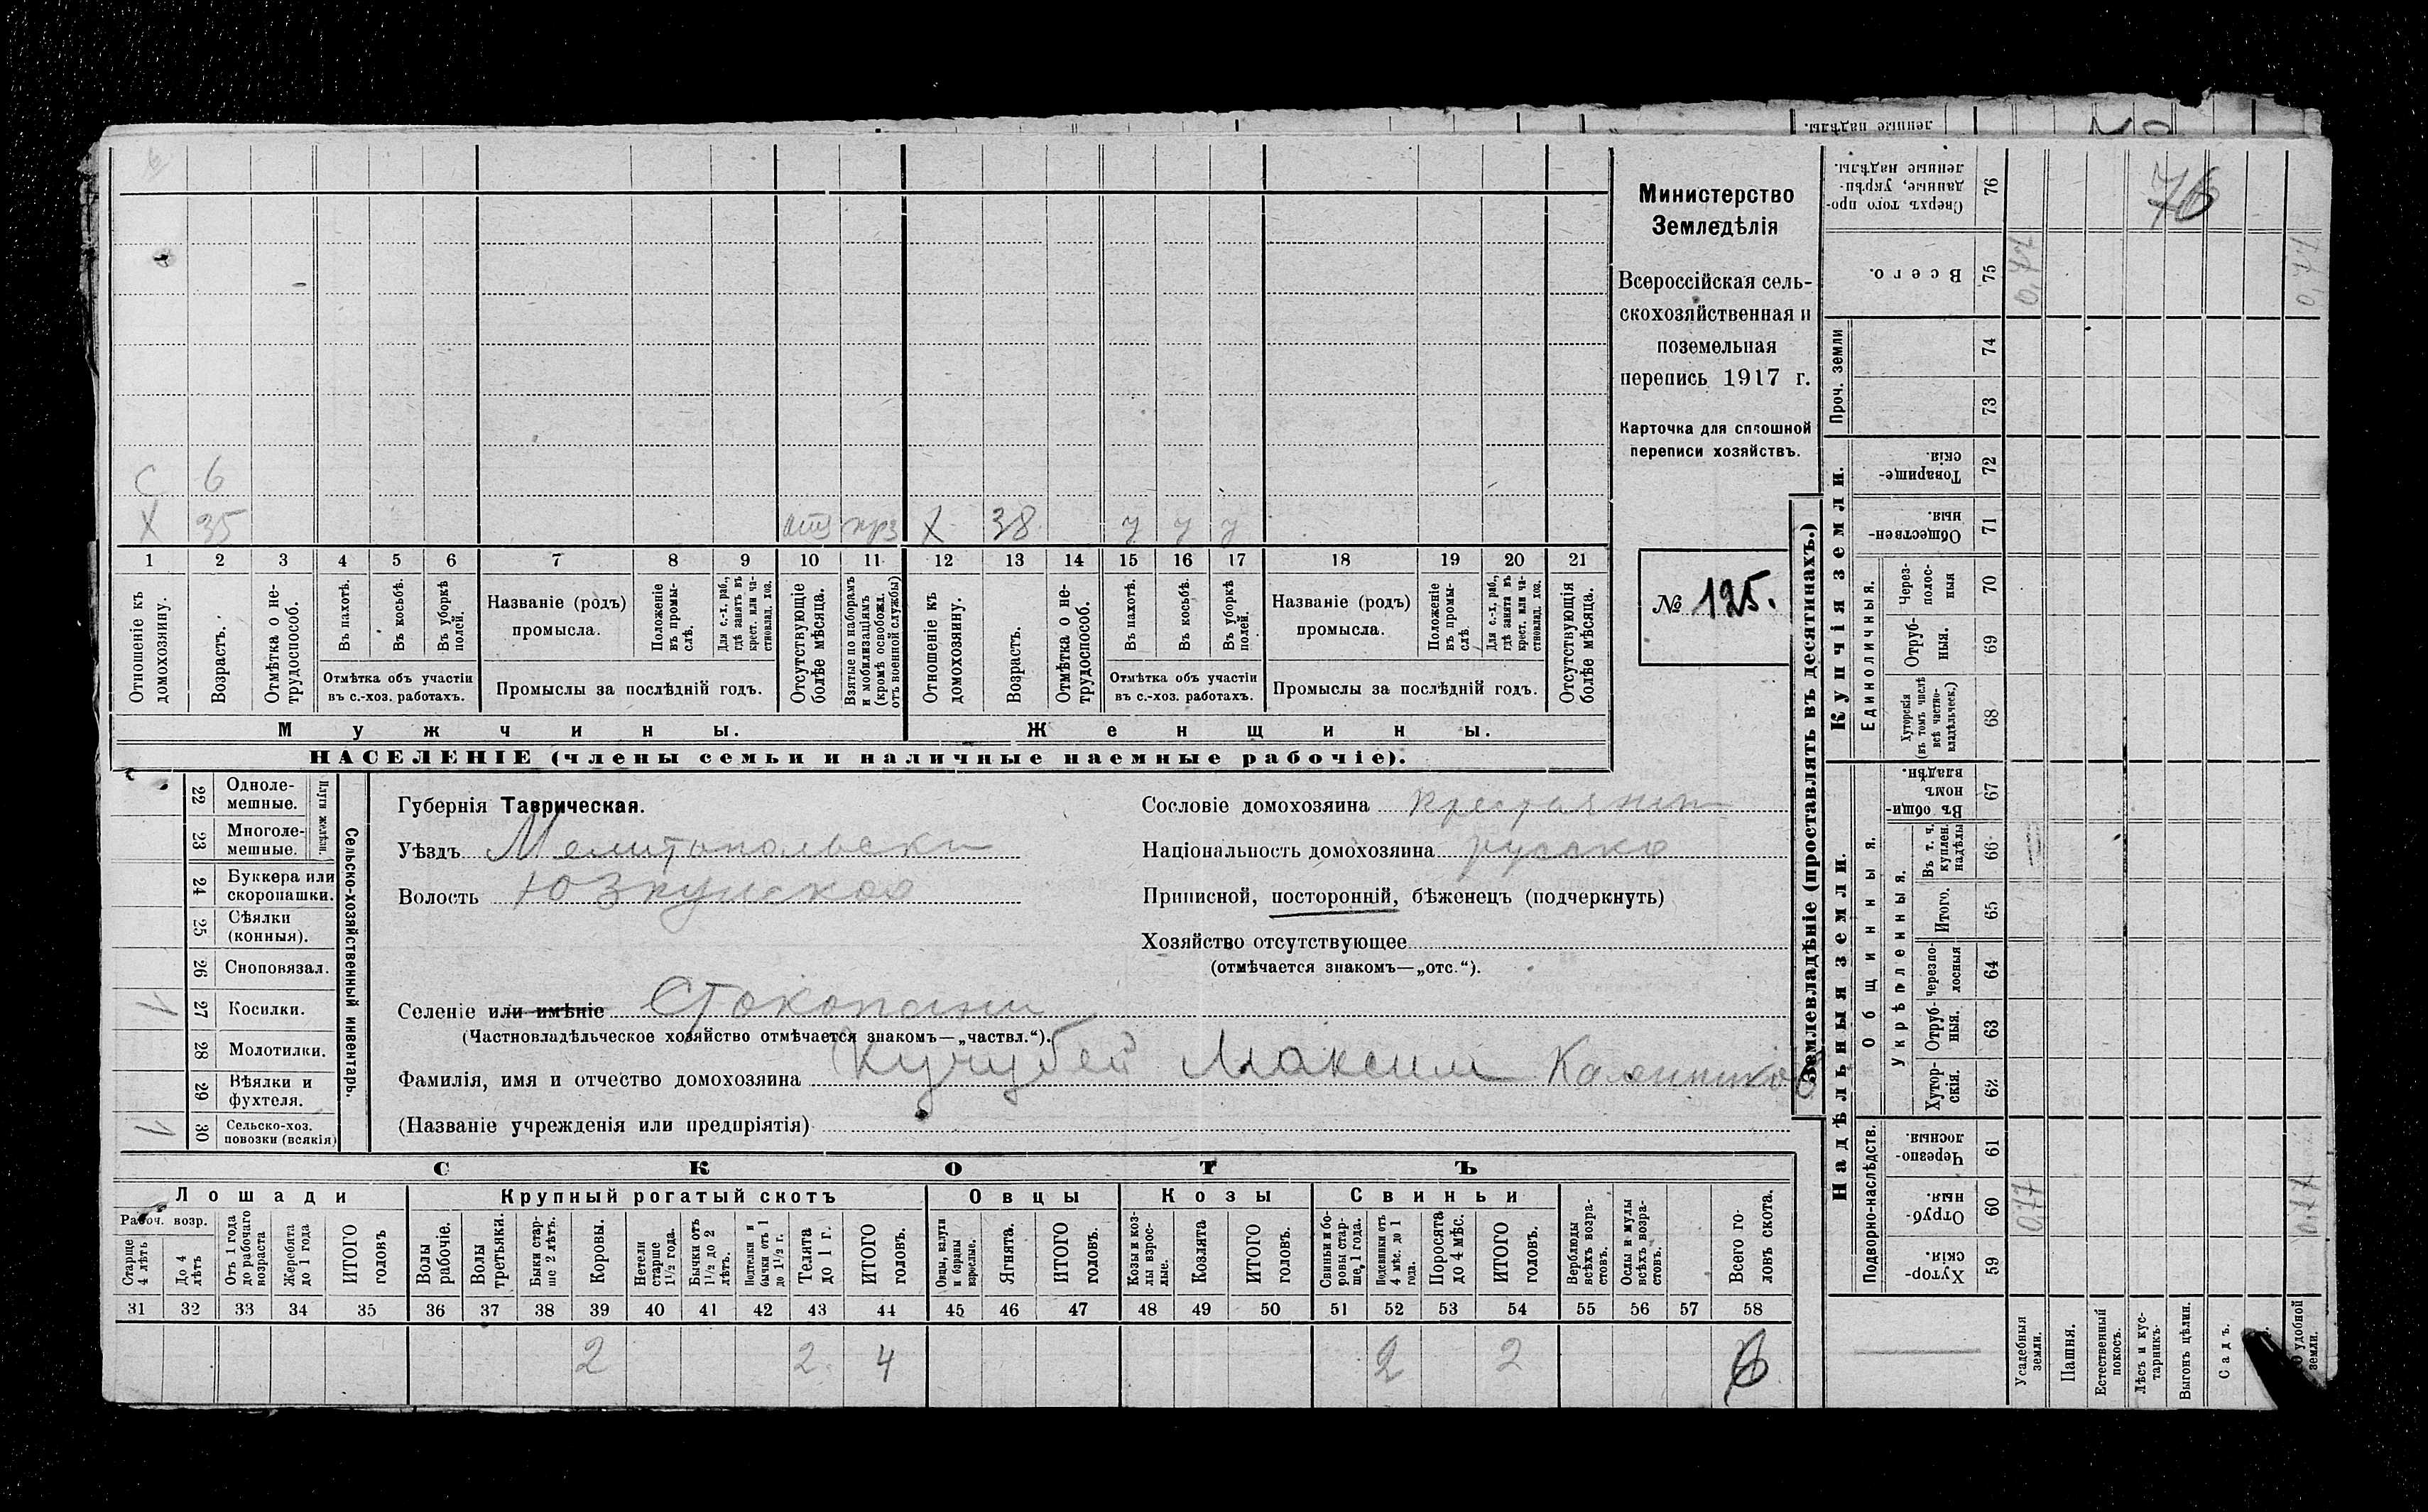 ленные надѣлы.
С 6
Х 35 отз прз Х 38 у у у
1 2 3 4 5 6 7 8 9 10 11 12 13 14 15 16 17 18 19 20 21
Отношеніе къ домохозяину.
Возрастъ.
Отмѣтка о не-
трудоспособ.
Въ пахотѣ.
Въ косьбѣ.
Въ уборкѣ полей.
Отмѣтка объ участіи
въ с.-хоз. работахъ.
Названіе (родъ)
промысла.
Положеніе въ промы-
слѣ.
Для с.-х. раб., гдѣ занятъ въ крест. или ча-
стновлад. хоз.
Промыслы за послѣдній годъ.
Отсутствующіе болѣе мѣсяца.
Взятые по наборамъ и мобилизаціямъ (кромѣ освобожд. отъ военной службы)
Отношеніе къ домохозяину.
Возрастъ.
Отмѣтка о не-
трудоспособ.
Въ пахотѣ.
Въ косьбѣ.
Въ уборкѣ полей.
Отмѣтка объ участіи
въ с.-хоз. работахъ.
Названіе (родъ)
промысла.
Положеніе въ промы-
слѣ
Для с.-х. раб., гдѣ занята въ крест. или ча-
стновлад. хоз.
Промыслы за послѣдній годъ.
Отсутствующія болѣе мѣсяца.
Мужчины. Женщины.
НАСЕЛЕНІЕ (члены семьи и наличные наемные рабочіе).
Министерство
Земледѣлія
Всероссійская сель-
скохозяйственная и
поземельная
перепись 1917 г.
Карточка для сплошной
переписи хозяйствъ.
№ 125.
22 Одноле-
мешные.
23 Многоле-
мешные.
Плуги желѣзн.
24 Буккера или
скоропашки.
25 Сѣялки
(конныя).
26 Сноповязал.
27 Косилки.
28 Молотилки.
29 Вѣялки и
фухтеля.
30 Сельско-хоз.
повозки (всякія)
Сельско-хозяйственный инвентарь.
Губернія Таврическая.
Уѣздъ Мелитопольски
Волость Юзкуйская
Селеніе или имѣніе Стокопани
(Частновладѣльческое хозяйство отмѣчается знакомъ—„частвл.“).
Фамилія, имя и отчество домохозяина Кучубей Максим
(Названіе учрежденія или предпріятія)
Сословіе домохозяина крестьянин
Національность домохозяина руська
Приписной, посторонній, бѣженецъ (подчеркнуть)
Хозяйство отсутствующее
(отмѣчается знакомъ—„отс.“).
СКОТЪ
Лошади Крупный рогатый скотъ Овцы Козы Свиньи
Рабоч. возр.
Старше 4 лѣтъ
До 4 лѣтъ
Отъ 1 года до рабочаго возраста
Жеребята до 1 года
ИТОГО головъ
Волы рабочіе.
Волы третьяки.
Быки стар-
ше 2 лѣтъ.
Коровы.
Нетели старше 1½ года.
Бычки отъ 1½ до 2 лѣтъ.
Подтелки и бычки отъ 1 до 1½ г.
Телята до 1 г.
ИТОГО головъ.
Овцы, валухи и бараны взрослые.
Ягнята.
ИТОГО головъ.
Козы и коз-
лы взрос-
лые.
Козлята
ИТОГО головъ.
Свиньи и бо-
ровы стар-
ше, 1 года.
Подсвинки отъ 4 мѣс. до 1 года.
Поросята до 4 мѣс.
ИТОГО головъ.
Верблюды всѣхъ возра-
стовъ.
Ослы и мулы всѣхъ возра-
стовъ.
Всего го-
ловъ скота.
31 32 33 34 35 36 37 38 39 40 41 42 43 44 45 46 47 48 49 50 51 52 53 54 55 56 57 58
2 2 4 2 2 6
Землевладѣніе (проставлять въ десятинахъ.)
Купчія земли.
Надѣльныя земли.
Сверхъ того про-
данные, укрѣп-
ленные надѣлы.
76
76
Всего.
75
Проч. земли
74
73
Товарище-
скія.
72
Обществен-
ныя.
71
Единоличныя.
Через-
полос-
ныя
70
Отруб-
ныя.
69
Хуторскія (въ томъ числѣ всѣ частно-
владѣльческ.)
68
Общинныя.
Въ общин-
номъ владѣн.
67
Укрѣпленныя.
Въ т. ч. куплен. надѣлы
66
Итого.
65
Черезпо-
лосныя
64
Отруб-
ныя.
63
Хутор-
скія.
62
Подворно-наслѣдств.
Черезпо-
лосныя.
61
Отруб-
ныя.
60
0,77
0,77
Хутор-
скія.
59
Усадебныя земли.
Пашня.
Естественный покосъ.
Лѣсъ и кус-
тарникъ.
Выгонъ цѣлин.
Садъ.
удобной земли.